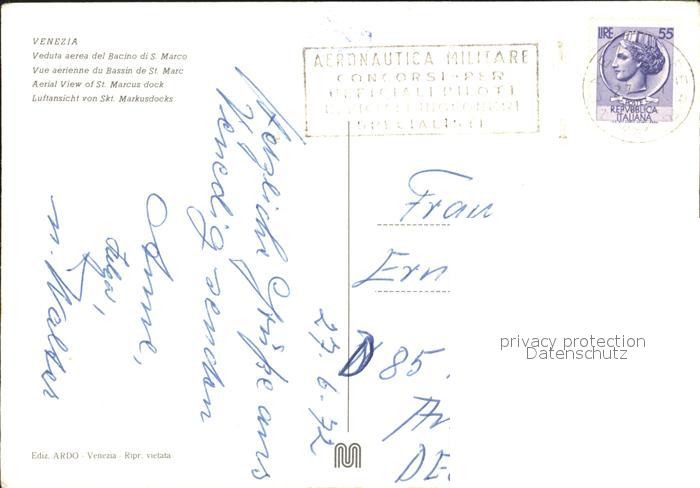 VENEZIA
Veduta aerea del Bacino di S. Marco
Vue aerienne du Bassin de St. Marc
Aerial View of St. Marcus dock
Luftansicht von Skt. Markusdocks
AERONAUTICA MILITARE
CONCORSI PER
UFFICIALI PILOTI
UFFICIALI INGEGNERI
SPECIALISTI
LIRE 55
POSTE
REPVBBLICA
ITALIANA
27.6.72
Herzliche Grüße aus
Venedig senden
Anne,
u. Walter
Frau
Ern
D 85
DE
privacy protection
Datenschutz
Ediz. ARDO - Venezia - Ripr. vietata